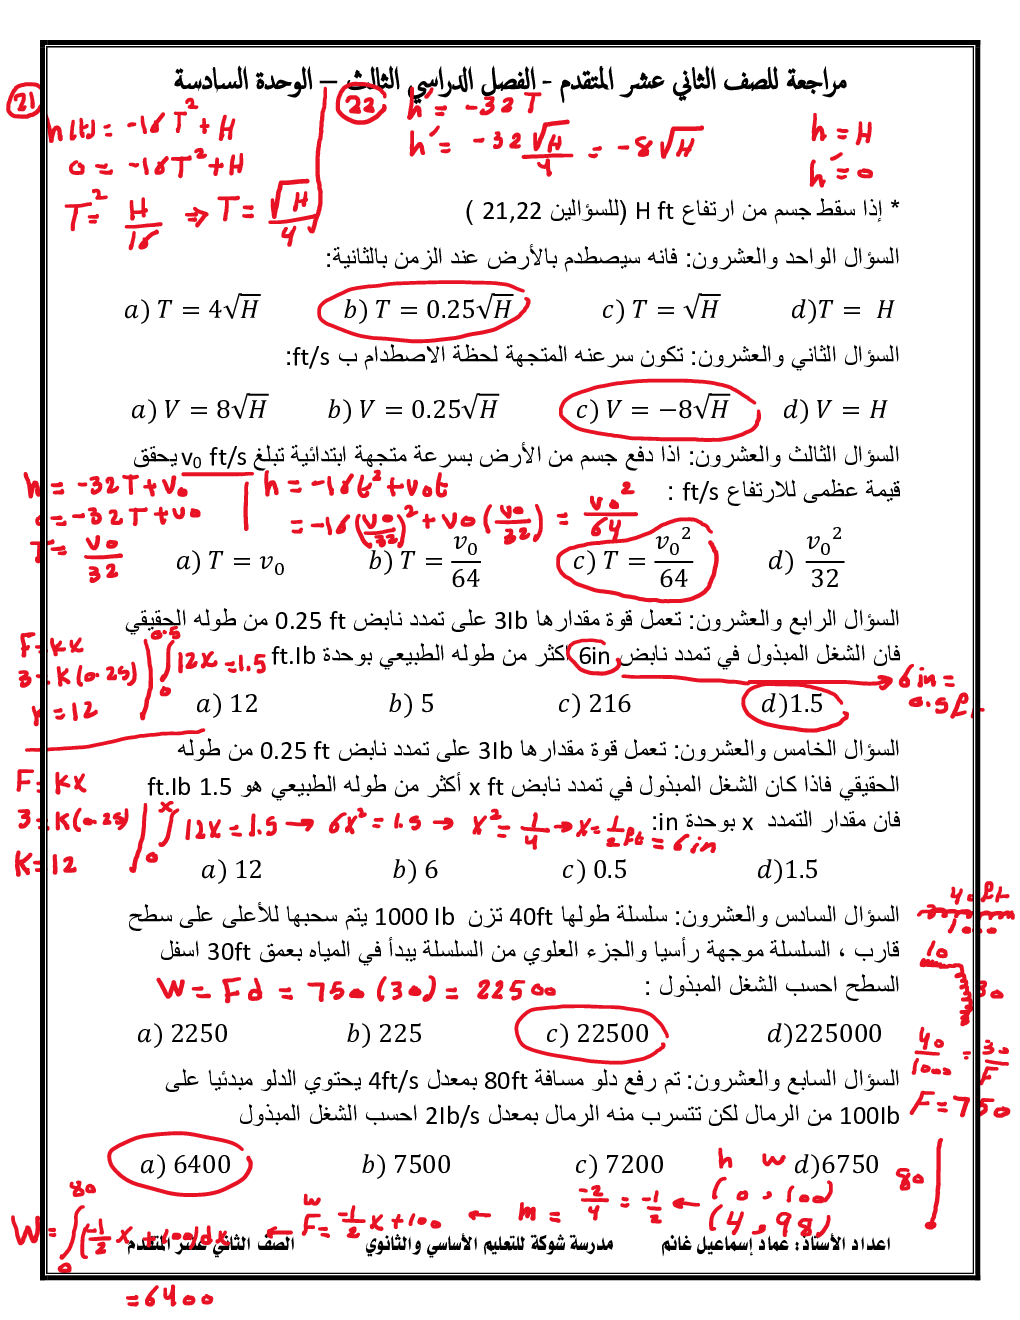 مراجعة للصف الثاني عشر المتقدم - الفصل الدراسي الثالث – الوحدة السادسة
21
h(t) = -16T² + H
0 = -16T² + H
T² = H/16 ⇒ T = √H/4
22
h' = -32T
h' = -32 √H/4 = -8√H
h = H
h' = 0
* إذا سقط جسم من ارتفاع H ft (للسؤالين 21,22 )
السؤال الواحد والعشرون: فانه سيصطدم بالأرض عند الزمن بالثانية:
a) T = 4√H b) T = 0.25√H c) T = √H d)T = H
السؤال الثاني والعشرون: تكون سرعنه المتجهة لحظة الاصطدام ب ft/s:
a) V = 8√H b) V = 0.25√H c) V = −8√H d) V = H
السؤال الثالث والعشرون: اذا دفع جسم من الأرض بسرعة متجهة ابتدائية تبلغ v₀ ft/s يحقق
قيمة عظمى للارتفاع ft/s :
h' = -32T + v₀
0 = -32T + v₀
T = v₀/32
h = -16t² + v₀t
= -16(v₀/32)² + v₀(v₀/32) = v₀²/64
a) T = v₀ b) T = v₀/64 c) T = v₀²/64 d) v₀²/32
السؤال الرابع والعشرون: تعمل قوة مقدارها 3Ib على تمدد نابض 0.25 ft من طوله الحقيقي
فان الشغل المبذول في تمدد نابض 6in اكثر من طوله الطبيعي بوحدة ft.Ib
F = kx
3 = k(0.25)
k = 12
∫₀^0.5 12x = 1.5
6in = 0.5ft
a) 12 b) 5 c) 216 d)1.5
السؤال الخامس والعشرون: تعمل قوة مقدارها 3Ib على تمدد نابض 0.25 ft من طوله
الحقيقي فاذا كان الشغل المبذول في تمدد نابض x ft أكثر من طوله الطبيعي هو 1.5 ft.Ib
فان مقدار التمدد x بوحدة in:
F = kx
3 = k(0.25)
k = 12
∫₀^x 12x = 1.5 → 6x² = 1.5 → x² = 1/4 → x = 1/2 ft = 6in
a) 12 b) 6 c) 0.5 d)1.5
السؤال السادس والعشرون: سلسلة طولها 40ft تزن 1000 Ib يتم سحبها للأعلى على سطح
قارب ، السلسلة موجهة رأسيا والجزء العلوي من السلسلة يبدأ في المياه بعمق 30ft اسفل
السطح احسب الشغل المبذول :
W = Fd = 750(30) = 22500
40ft
1000
10
30
40/1000 = 30/F
F = 750
a) 2250 b) 225 c) 22500 d)225000
السؤال السابع والعشرون: تم رفع دلو مسافة 80ft بمعدل 4ft/s يحتوي الدلو مبدئيا على
100Ib من الرمال لكن تتسرب منه الرمال بمعدل 2Ib/s احسب الشغل المبذول
a) 6400 b) 7500 c) 7200 d)6750
80
h w
(0, 100)
(4, 98)
W = ∫₀^80 (-1/2 x + 100)dx ← F = -1/2 x + 100 ← m = -2/4 = -1/2 ←
w
= 6400
اعداد الأستاذ: عماد إسماعيل غانم مدرسة شوكة للتعليم الأساسي والثانوي الصف الثاني عشر المتقدم